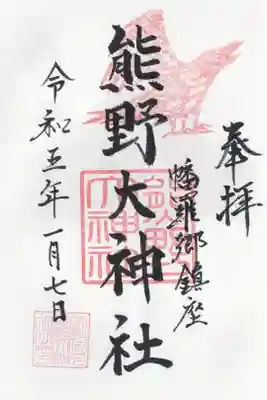 奉拝
幡羅郷鎮座
熊野大神社
令和五年一月七日